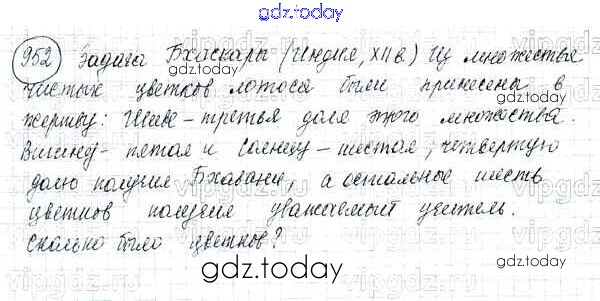 gdz.today
952 Задача Бхаскары (Индия, XII в.) Из множества
чистых цветков лотоса были принесена в
жертву: Шиве - третья доля этого множества.
Вишну - пятая и Солнцу - шестая; четвертую
долю получил Бхавани, а остальные шесть
цветков получил уважаемый учитель.
Сколько было цветков?
gdz.today
gdz.today
gdz.today
vipgdz
vipgdz